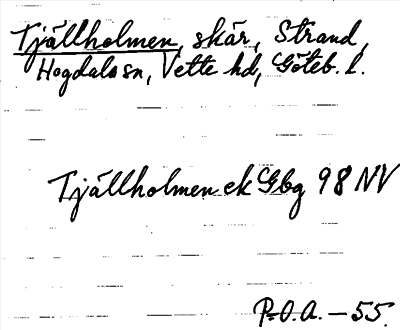 Tjällholmen, skär, Strand,
Hogdals sn, Vette hd, Göteb. l.
Tjällholmen ek Gbg 98 NV
P.O.A. – 55.